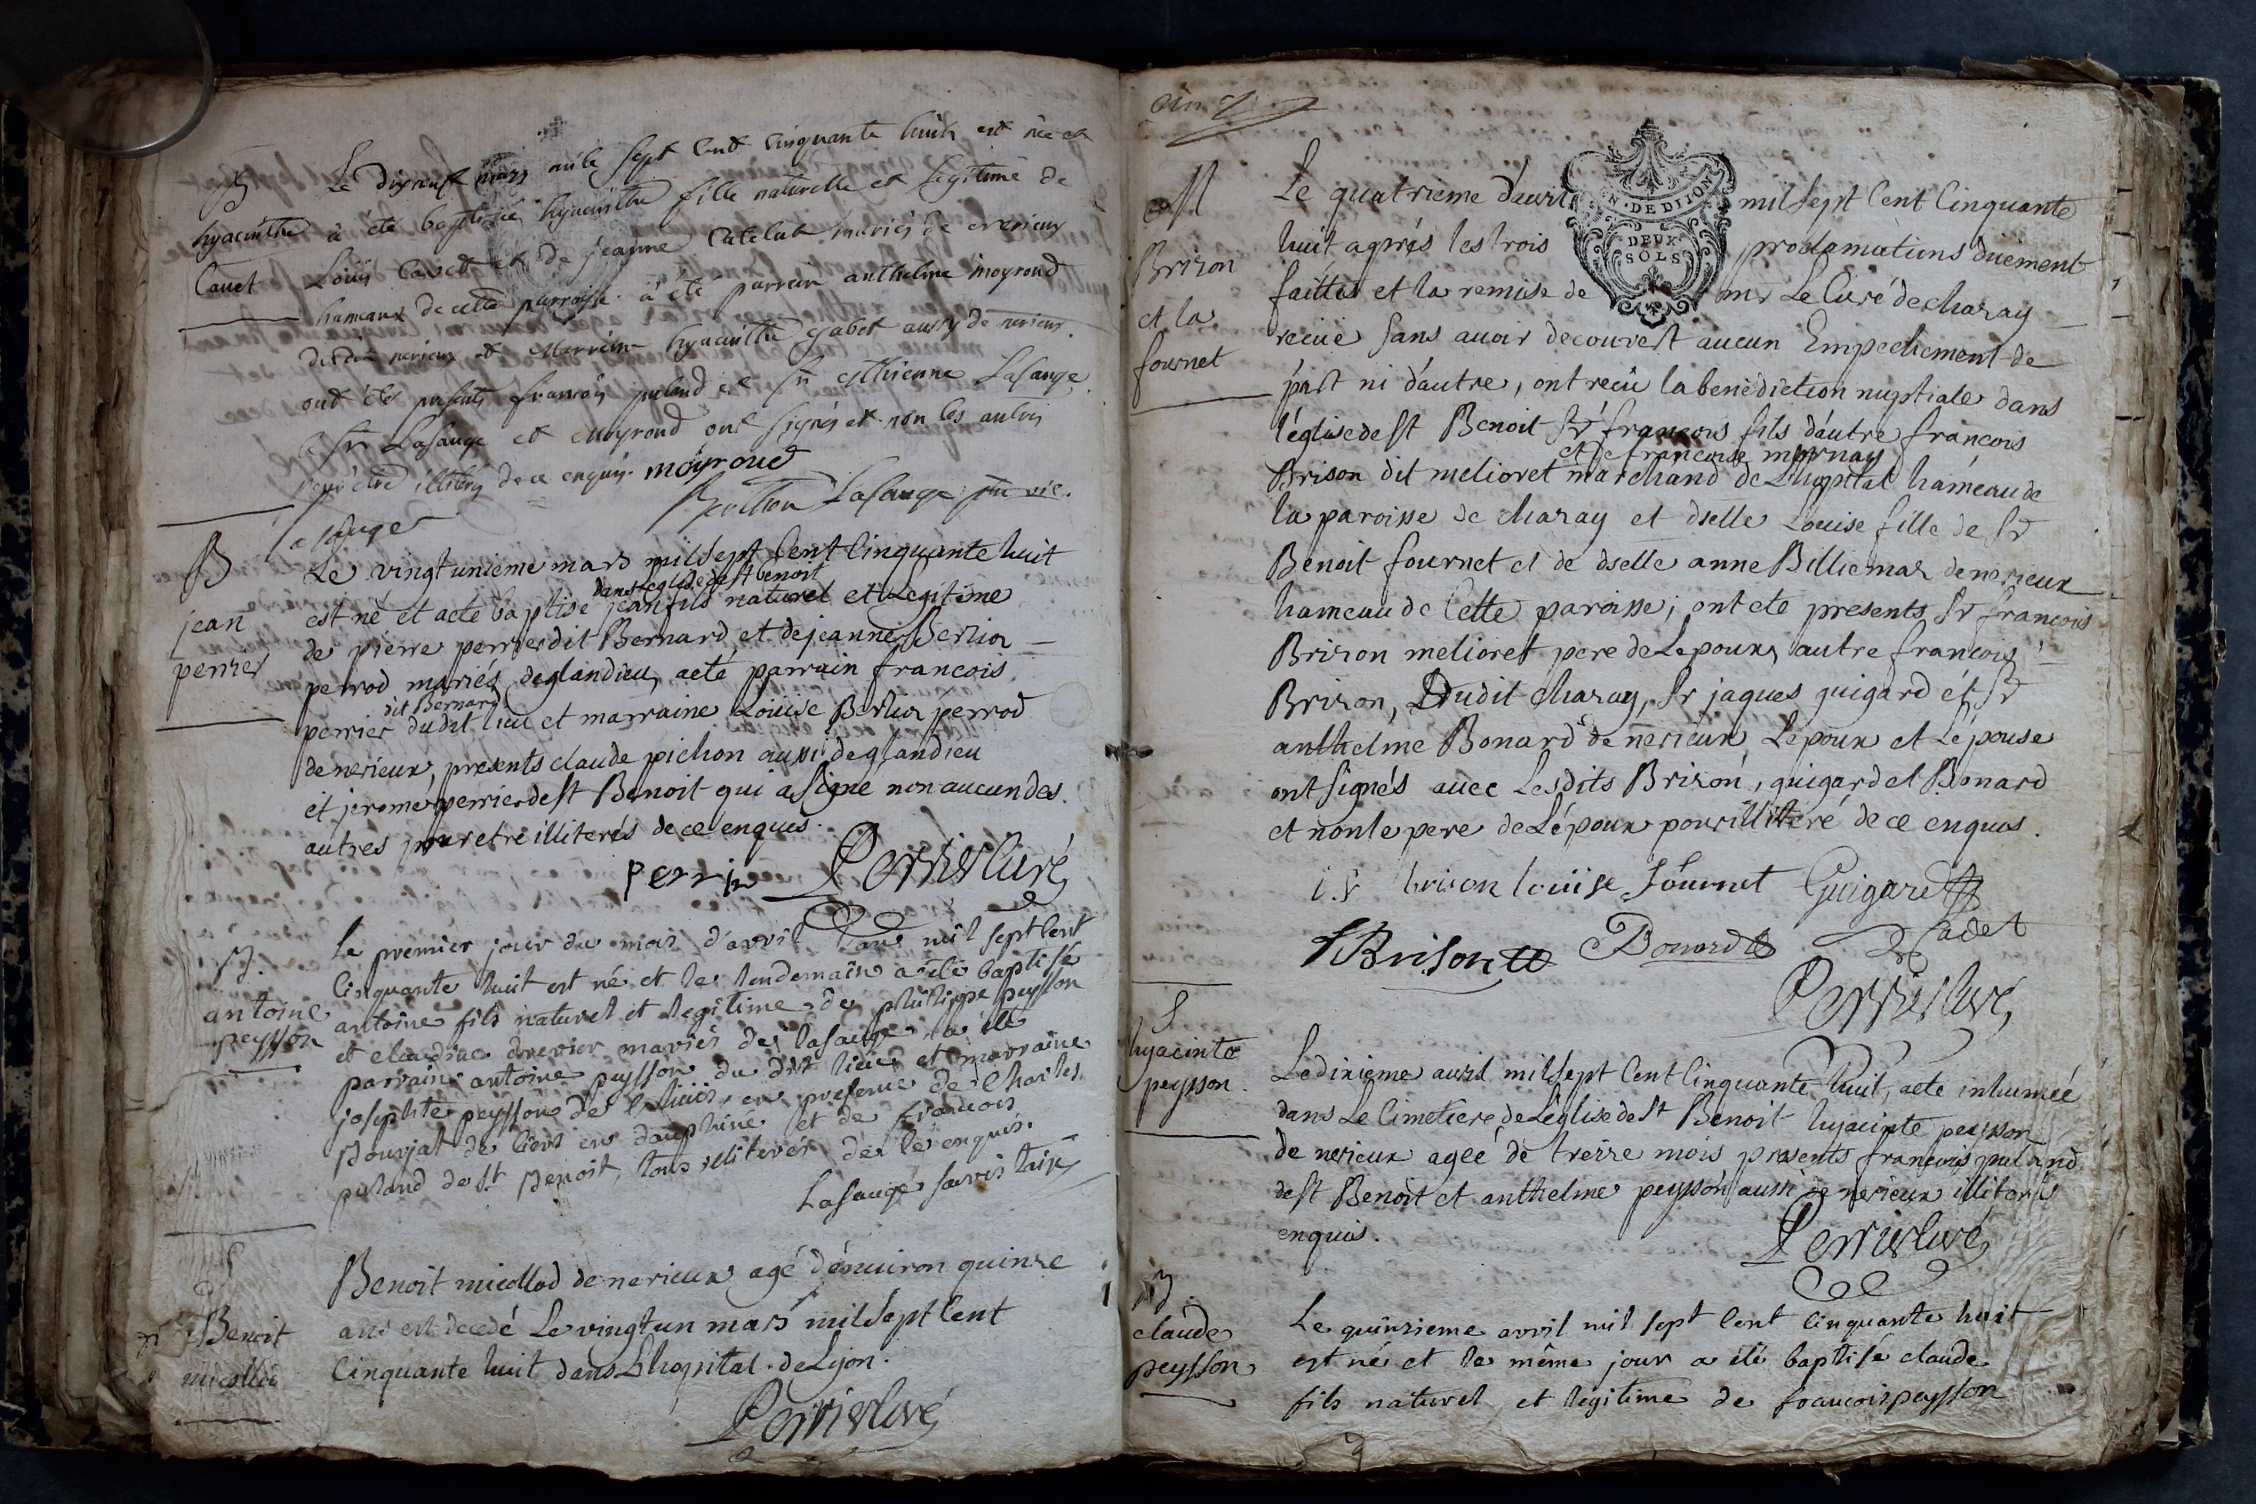 B
hyacinthe
Cauet
Le dixneuf mars mile sept cent cinquante huit est née et
à été baptisée hyacinthe fille naturelle et legitime de
Loüis Cauet et de jeanne catelat mariés de nerieux
hameaux de cette parroisse. à été parrain anthelme moyroud
dudit nerieux et Marrine hyacinthe gabet aussy de nerieux.
ont été presents françois puland et sr Ethienne Lasauge,
sr Lasauge et moyroud ont signés et non les autres
pour être illitérés de ce enquis. moyroud
Lasauge
Lasauge vic.
B
jean
perrier
Le vingtunieme mars mil sept Cent Cinquante huit
dans leglise de st benoit
est né et aeté baptisé jean fils naturel et Legitime
de pierre perrier dit Bernard et de jeanne Berlioz
perrod mariés deglandieu, aeté parrain francois
dit Bernard
perrier du dit lieu et marraine Loüise Berlioz perrod
de nerieux, presents claude pichon aussi deglandieu
et jeromé perrier de st Benoit qui a signé non aucun des
autres pour etre illiterés de ce enquis.
perrier Perrier Curé
B.
antoine
peysson
Le premier jour du mois d'avril l'an mil sept Cent
Cinquante huit est né et le lendemain a été baptisé
antoine fils naturel et legitime de philippe peysson
et claudine drevier mariés de lasauge a été
parrain antoine peysson du dit lieu et marraine
josephte peysson de en presence de Charles
Mourjat de Ciers en dauphiné et de francois
puland de st Benoit, tous illiterés de ce enquis.
Lasauge
S
Benoit
micollod
Benoit micollod de nerieux agé d'énuiron quinze
ans est decedé Le vingt un mars mil sept Cent
Cinquante huit dans Lhopital de Lyon.
Perrier Curé
cinq
GN. DE DIJON
DEUX
SOLS
M
Brizon
et la
fournet
Le quatrieme d'auril mil sept Cent Cinquante
huit aprés les trois proclamations düement
faittes et la remise de mr Le Curé de charay
reciie sans auoir decouvert aucun Empechement de
part ni d'autre, ont recû la benediction nuptiale dans
l'église de st Benoit Sr françois fils d'autre francois
et de francoise mornay
Brison dit melioret marchand de L'hopital hámeau de
la paroisse de charay et dselle Louise fille de Sr
Benoit fournet et de dselle anne Billiemaz de nerieux
hameau de Cette paroisse; ont eté presents Sr francois
Brizon melioret pere de Lepoux, autre francois
Brizon, Dudit charay, Sr jaques guigard et Sr
anthelme Bonard de nerieux Lepoux et Lépouse
ont signés auec Lesdits Brizon, guigard et Bonard
et non le pere de Lépoux pour illitteré de ce enquis.
brison loüise fournet Guigard
f Brison Bonard Cadet
Perrier Curé
S
hyacinte
peysson
Le dixieme auril mil sept Cent Cinquante huit, aeté inhumeé
dans Le Cimetiere de L'église de st Benoit hyacinte peysson
de nerieux ageé de treize mois presents francois puland
de st Benoit et anthelme peysson aussi de nerieux illiterés
enquis.
Perrier Curé
B
claude
peysson
Le quinzieme avril mil sept Cent Cinquante huit
est né et le même jour a été baptisé claude
fils naturel et legitime de francois peysson